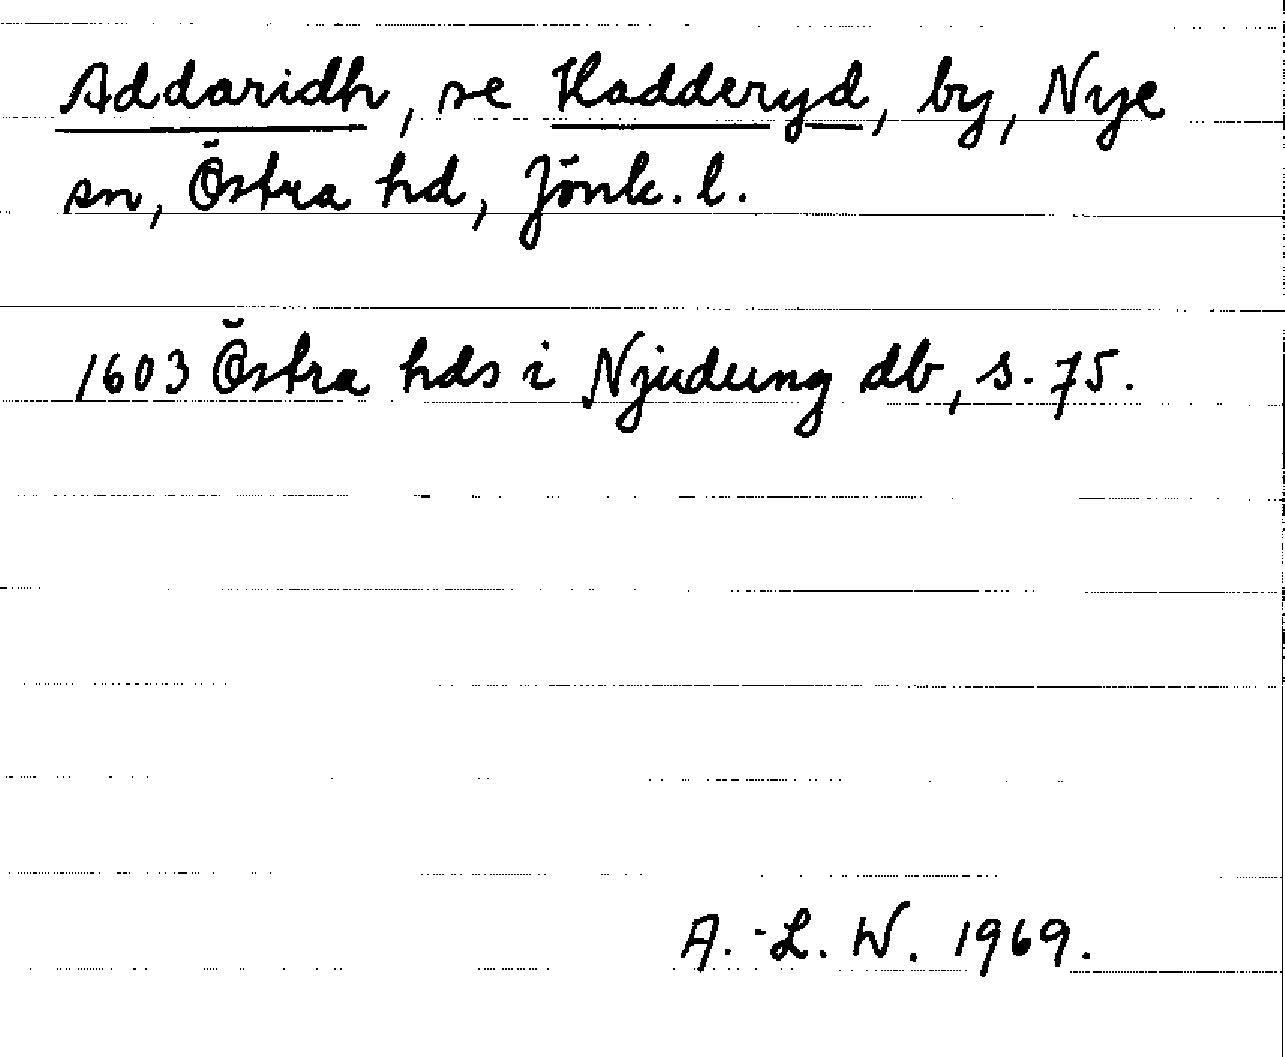 Addaridh, se Hadderyd, by, Nye
sn, Östra hd, Jönk. l.
1603 Östra hds i Njudung db, s. 75.
A.-L. W. 1969.